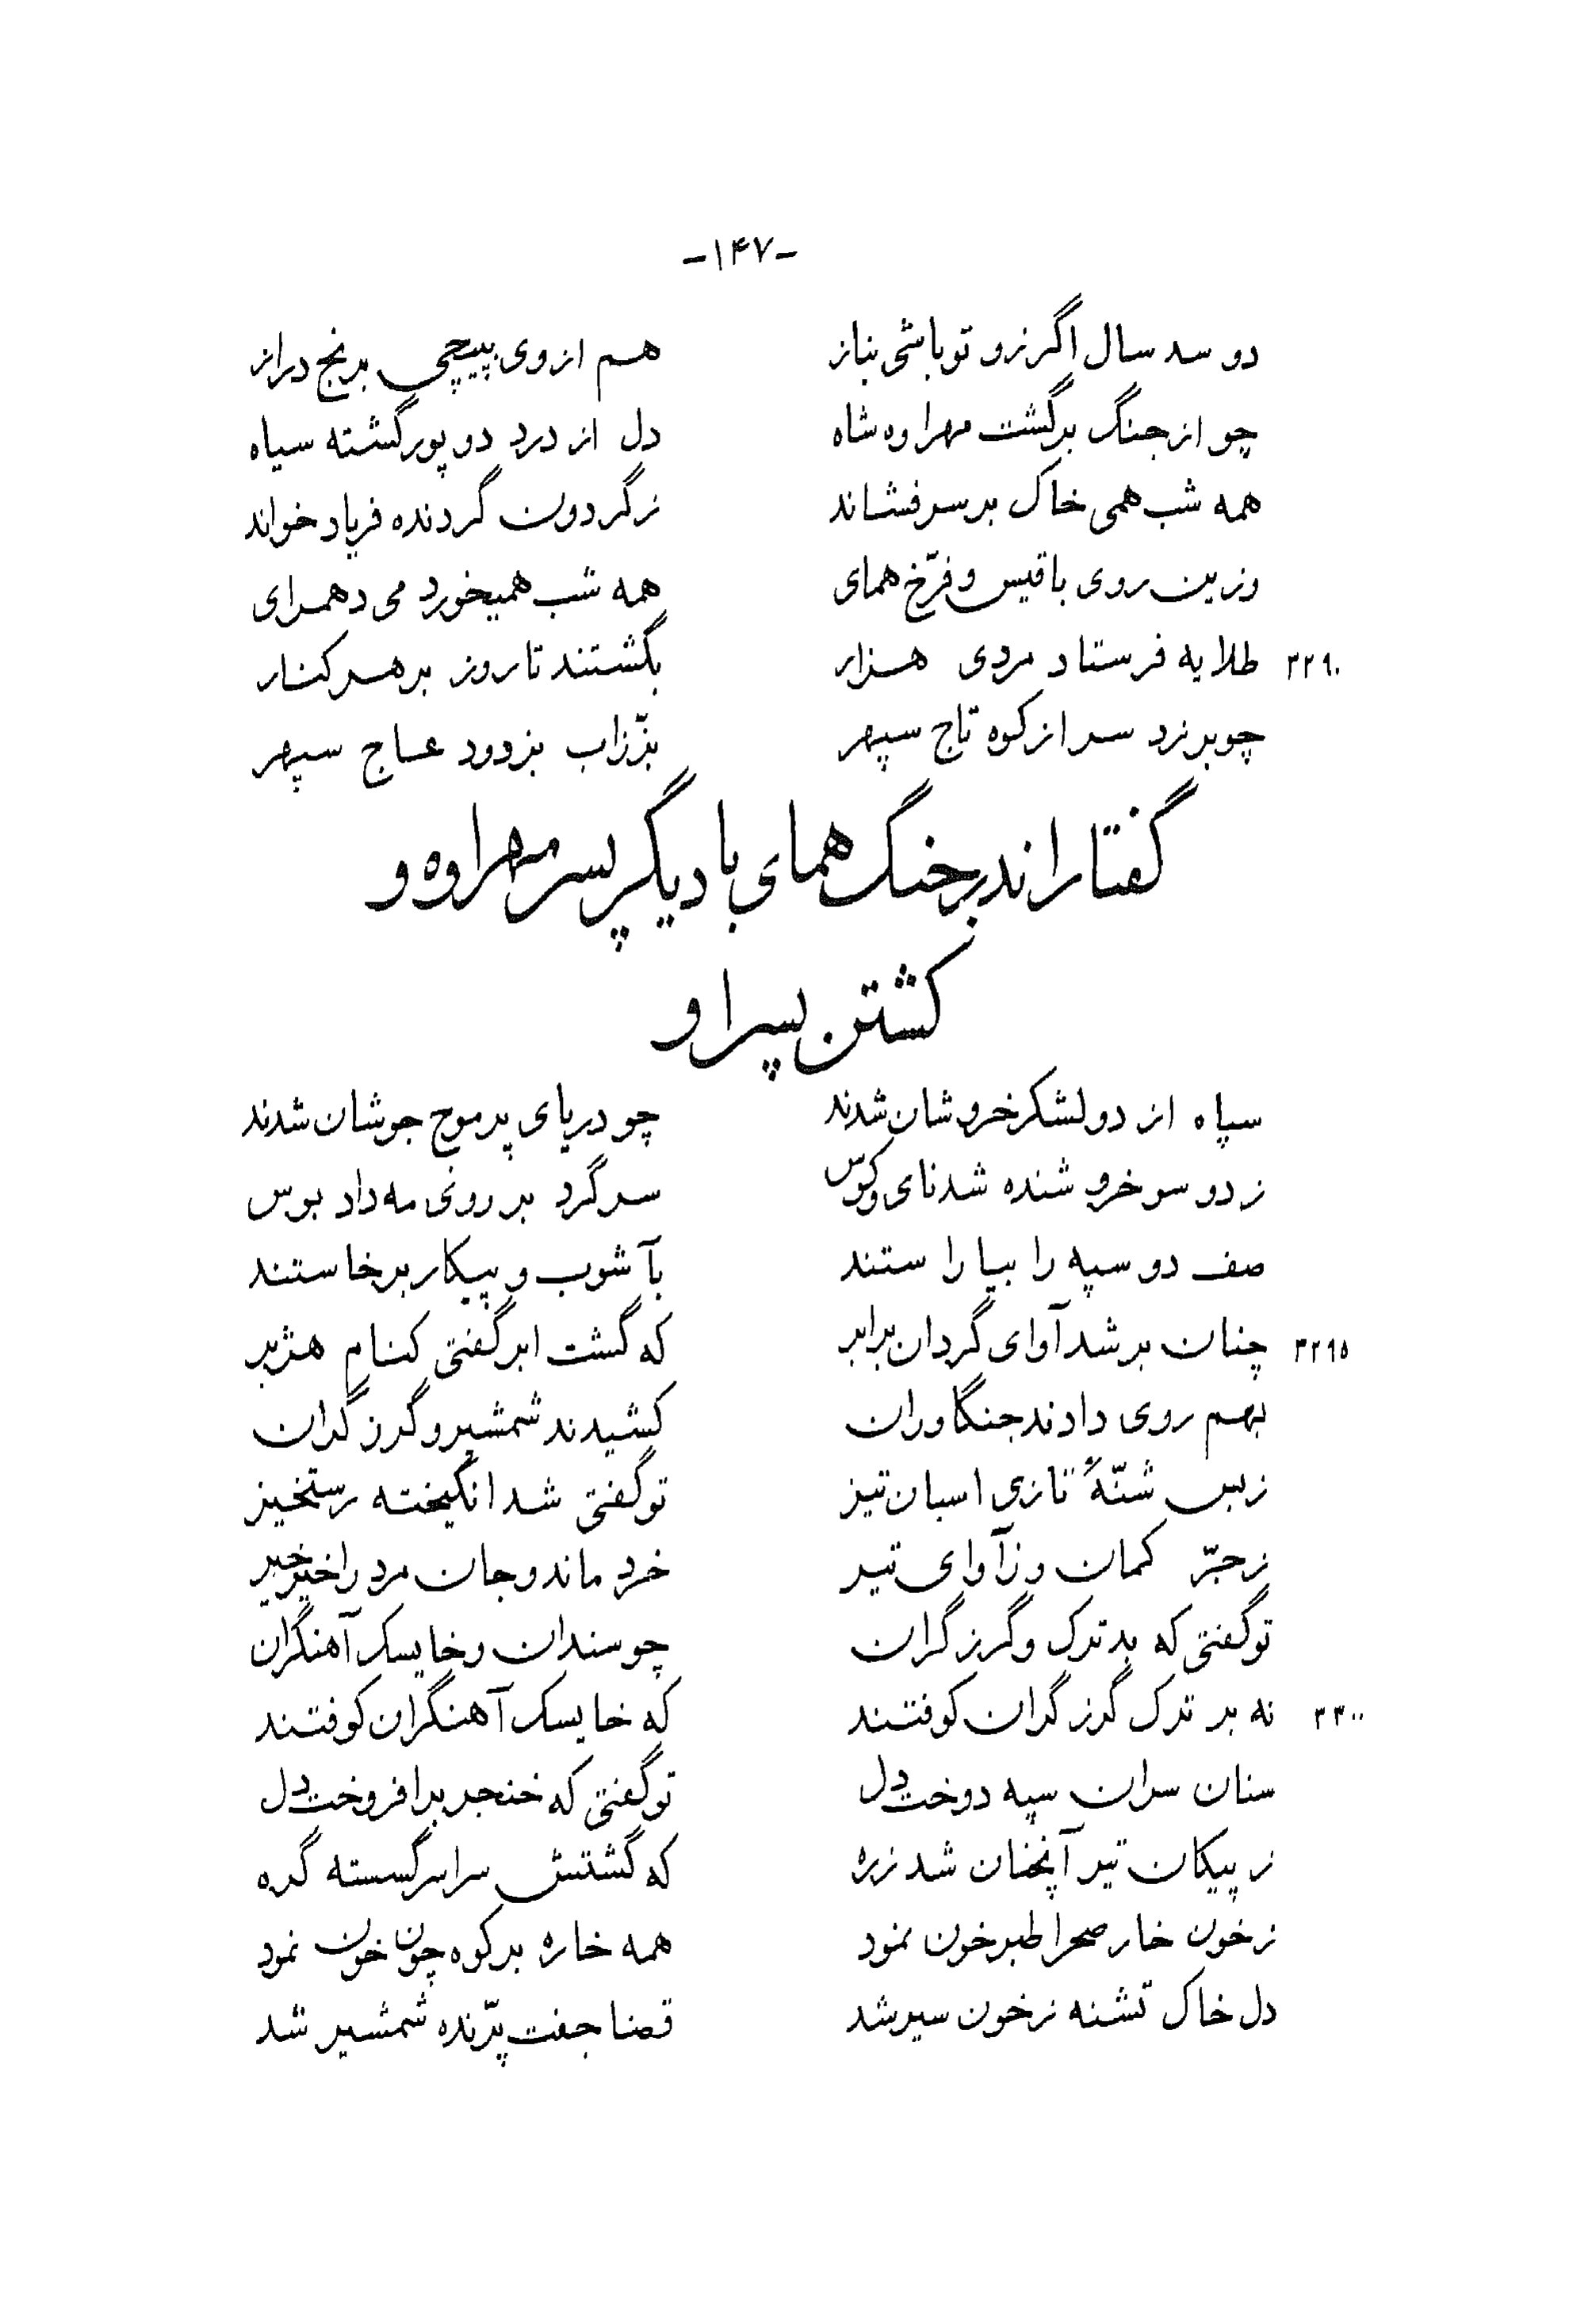 -۱۴۷-
دو سد سال اگر زو تو باشی بناز هم از وی بپیچی برنج دراز
چو از جنگ برگشت مهراوه شاه دل از درد دو پور گشته سیاه
همه شب همی خاک بر سر فشاند ز گردون گردنده فریاد خواند
وزین روی با قیس و فرّخ همای همه شب همیخورد می دهمرای
۳۲۹۰ طلایه فرستاد مردی هزار بگشتند تا روز بر هر کنار
چو بر زد سر از کوه تاج سپهر بزّراب بزدود عاج سپهر
گفتار اندر جنگ همای با دیگر پسر مهراوه و
کشتن پسر او
سپاه از دو لشکر خروشان شدند چو دریای پر موج جوشان شدند
ز دو سو خروشنده شد نای و کوس سر گرد بر روی مه داد بوس
صف دو سپه را بیاراستند بآشوب و پیکار برخاستند
۳۲۹۵ چنان بر شد آوای گردان برابر که گشت ابر گفتی کنام هژبر
بهم روی دادند جنگاوران کشیدند شمشیر و گرز گران
زبس شنّهٔ تازی اسبان تیز تو گفتی شد انگیخته رستخیز
ز جرّ کمان وز آوای تیر خرد ماند و جان مرد را خیر خیر
تو گفتی که بد ترک و گرز گران چو سندان و خایسک آهنگران
۳۳۰۰ نه بر ترک گرز گران کوفتند که خایسک آهنگران کوفتند
سنان سران سپه دوخت دل تو گفتی که خنجر برافروخت دل
ز پیکان تیر آنچنان شد زره که گشتش سراسر گسسته گره
ز خون خار صحرا طبرخون نمود همه خاره بر کوه چون خون نمود
دل خاک تشنه ز خون سیر شد قضا جفت پرّنده شمشیر شد